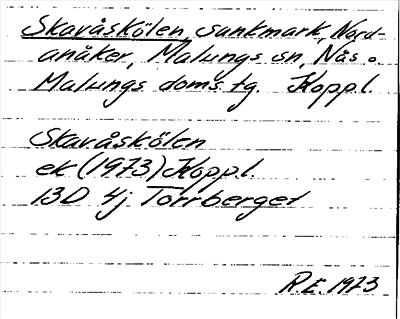 Skavåskölen, sankmark, Nord-
anåker, Malungs sn, Nås o.
Malungs doms. tg. Koppl.
Skavåskölen
ek (1973) Koppl.
13D 4j Torrberget
R.E. 1973